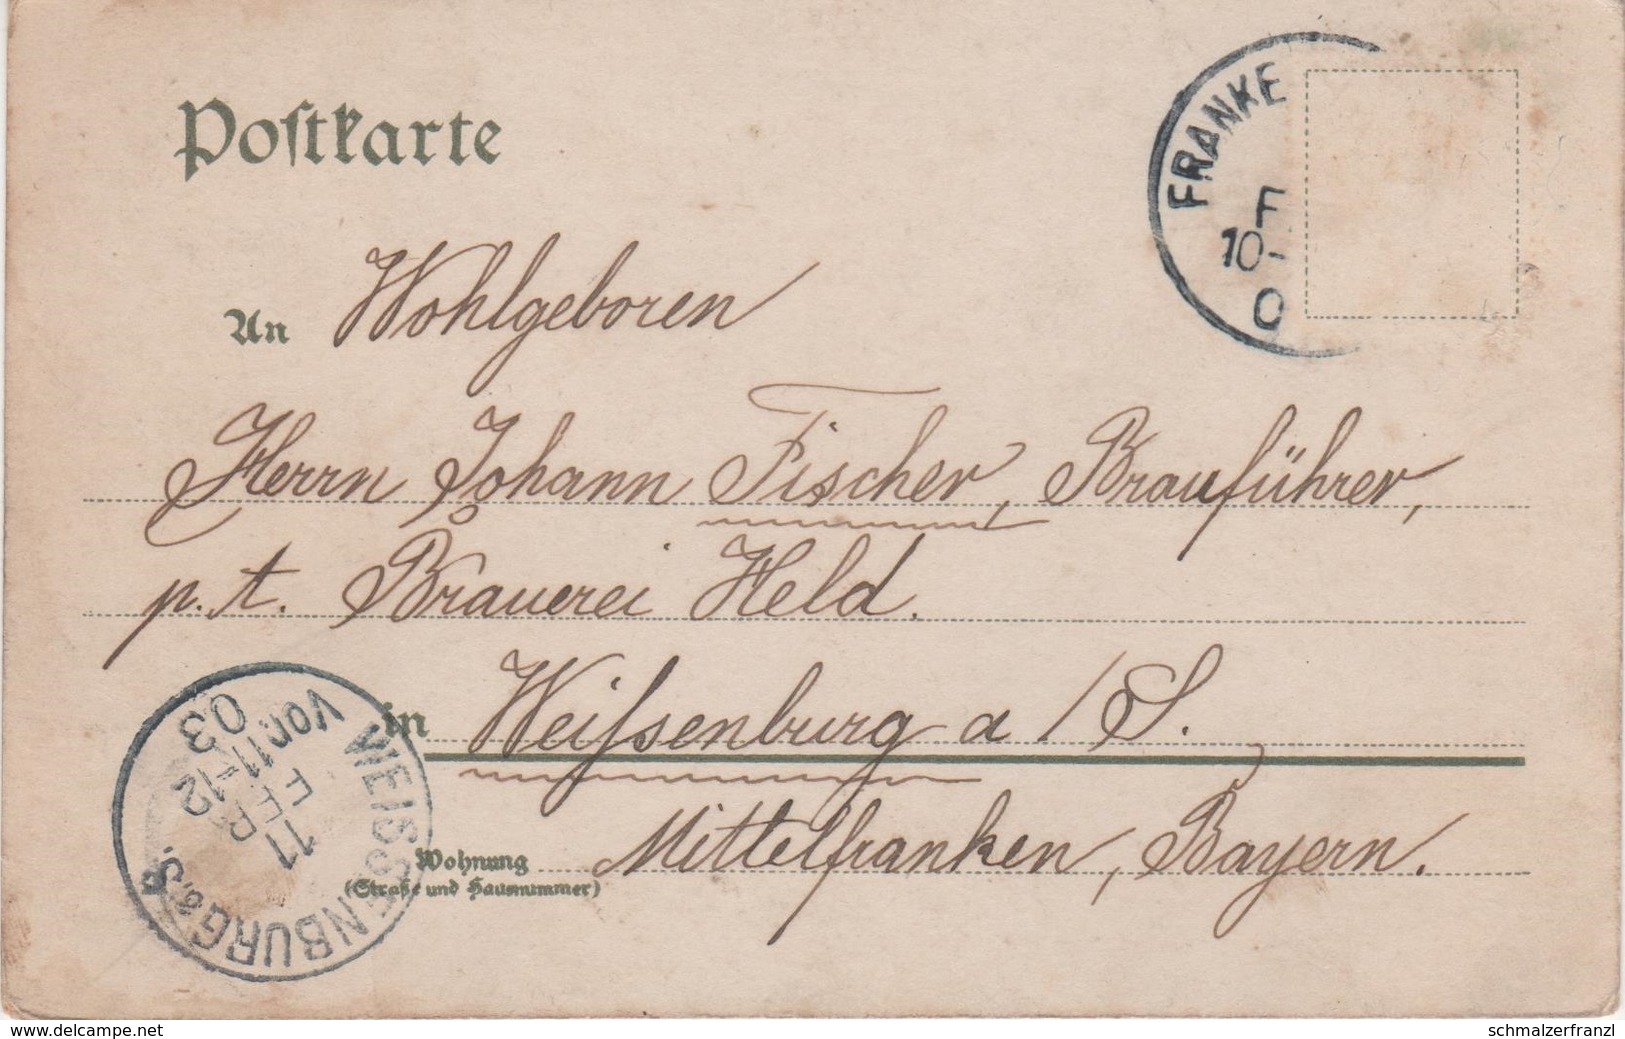 Postkarte
FRANKE
F
10-
0
An Wohlgeboren
Herrn Johann Fischer, Brauführer,
p. t. Brauerei Held.
in Weißsenburg a/S.
Mittelfranken, Bayern.
Wohnung
(Straße und Hausnummer)
WEISSENBURG a. S.
11
FEB
Vor. 11-12
03
www.delcampe.net
schmalzerfranzl